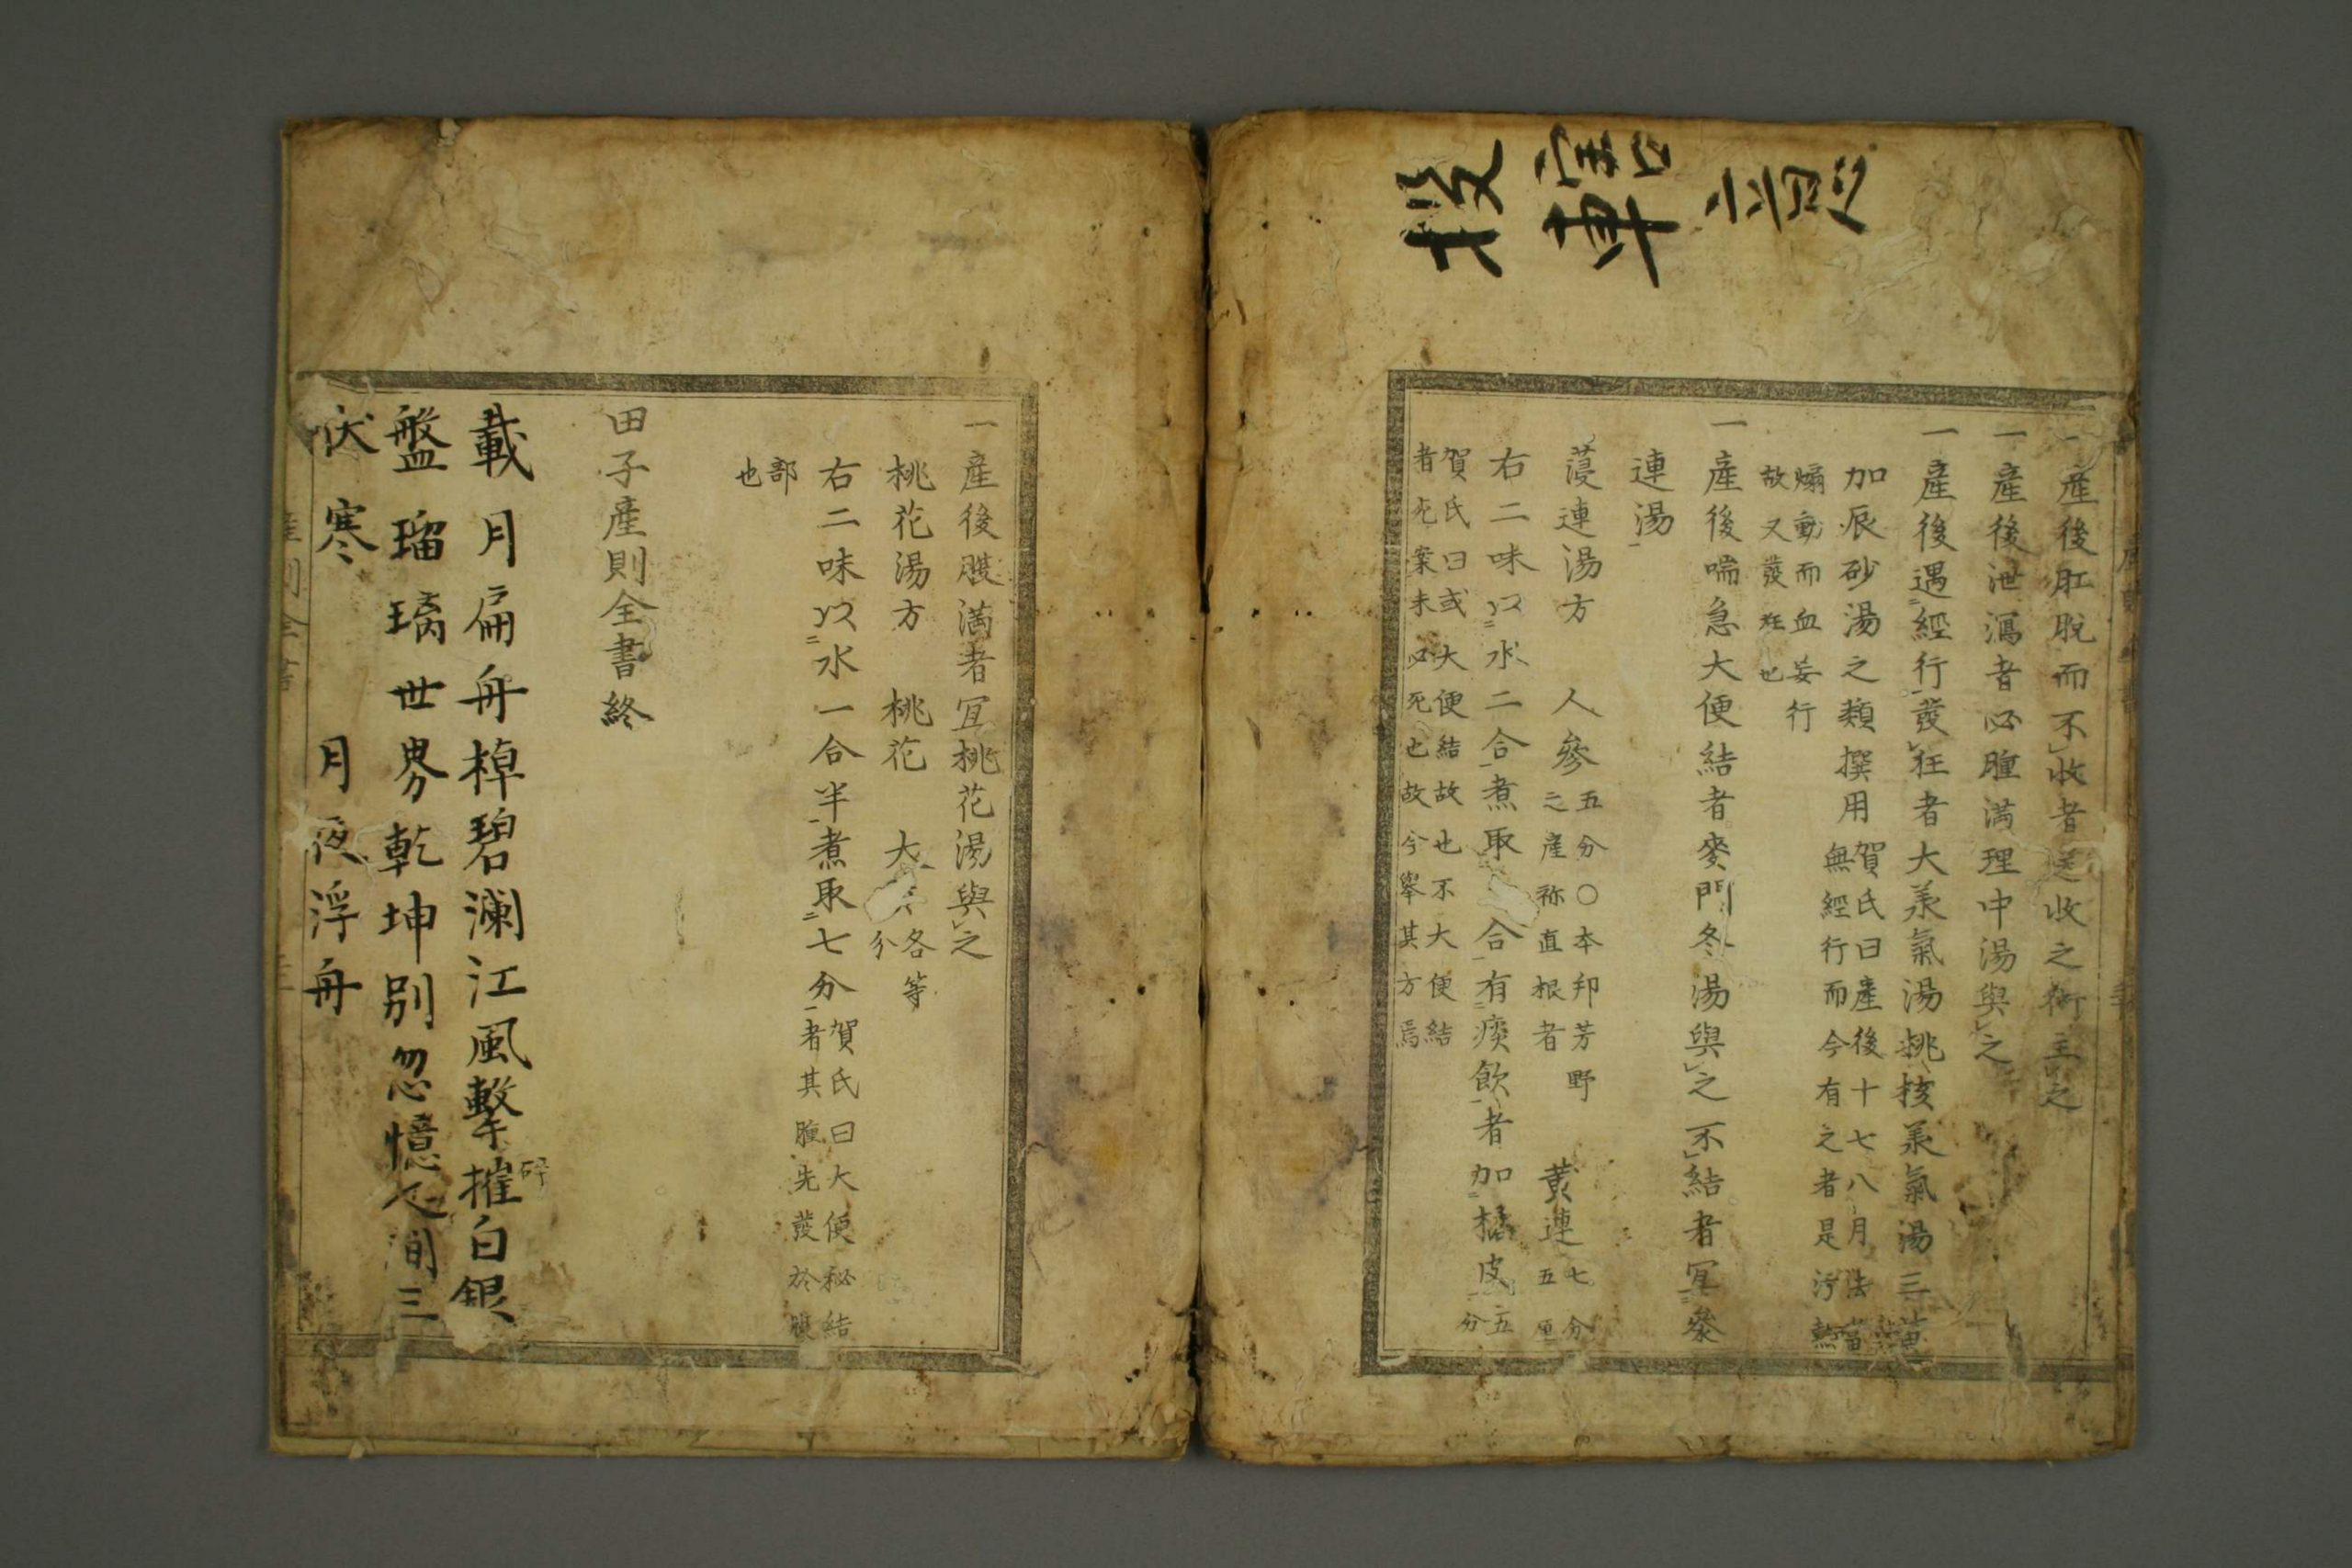 一産後肛脱而不收者逆收之術主之
一産後泄瀉者必腫満理中湯與之
一産後遇經行發狂者大羕氣湯桃核羕氣湯三黄
加辰砂湯之類撰用
賀氏曰産後十七八月法當
無經行而今有之者是汚熱
煽動而血妄行
故又發狂也
一産後喘急大便結者麥門冬湯與之不結者冝參
連湯
蓡連湯方　人參
五分〇本邦芳野
之産称直根者
黄連
七分
五厘
右二味以水二合煮取合有痰飲者加橘皮
五
分
賀氏曰或大便結故也不大便結
者死案未必死也故今舉其方焉
一産後腹満者冝桃花湯與之
桃花湯方　桃花　大
各等
分
右二味以水一合半煮取七分
賀氏曰大便秘結
者其腫先發於腹
部
也
田子産則全書終
載月扁舟棹碧瀾江風擊摧白銀
碎
盤瑠璃世界乾坤別忽憶人間三
伏寒　月夜浮舟
産則全書